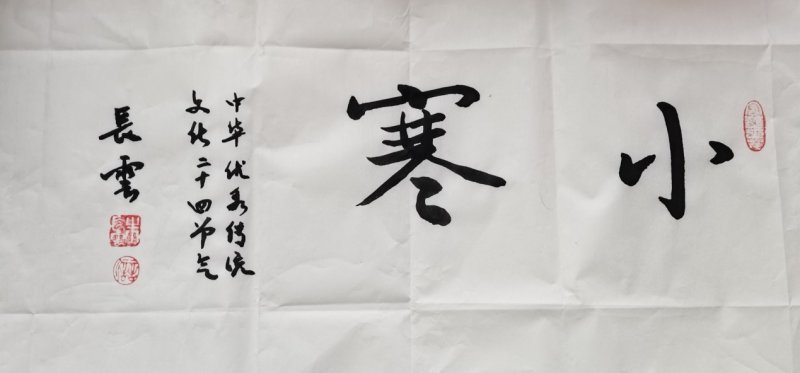 小寒
中华优秀传统
文化二十四节气
長雲